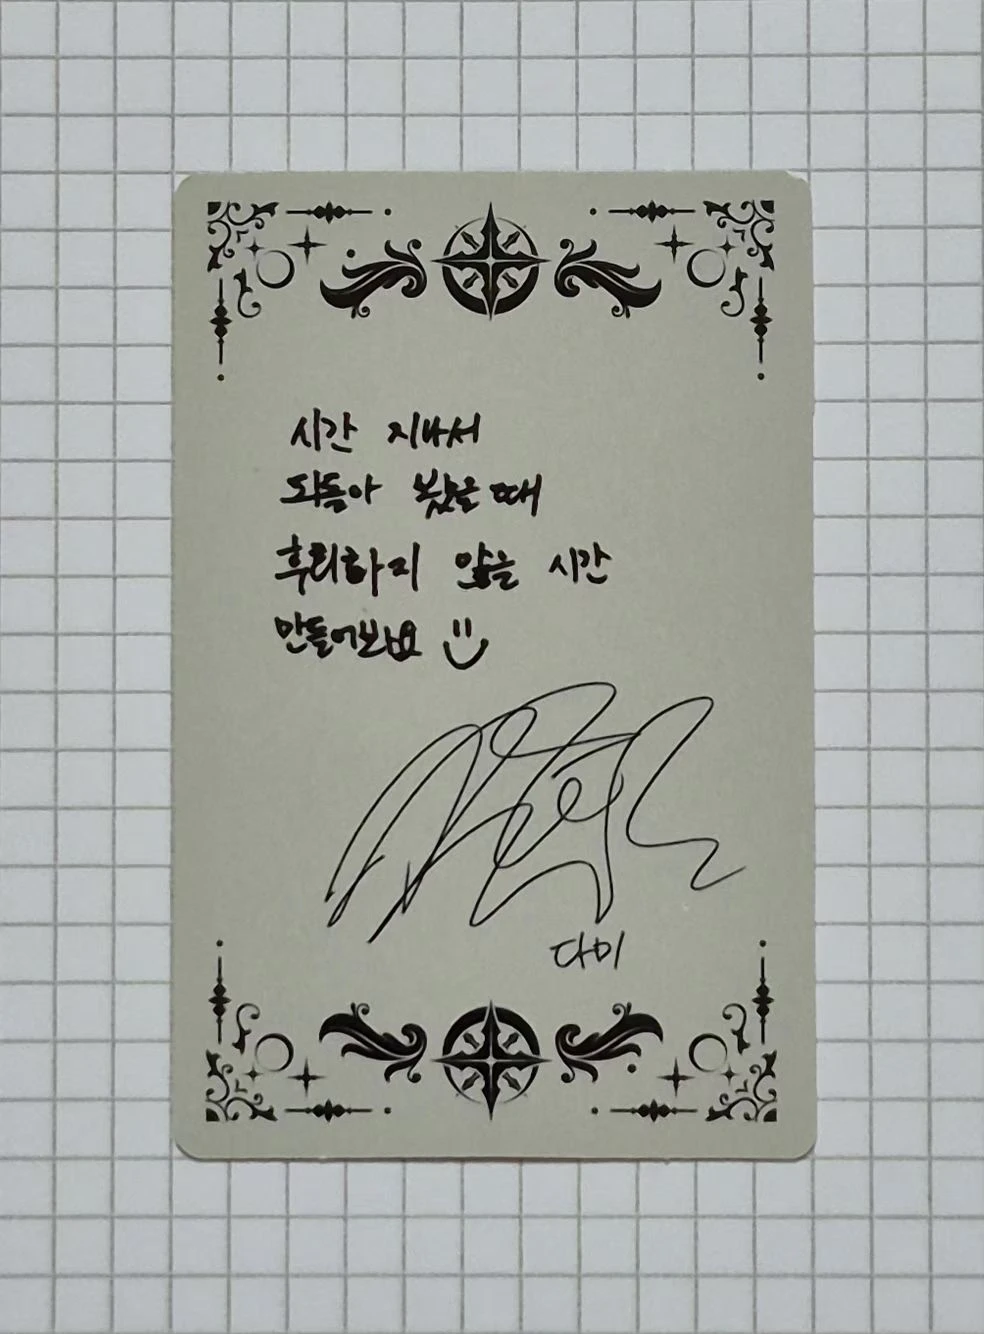 시간 지나서
되돌아 봤을 때
후회하지 않을 시간
만들어봐요
다미